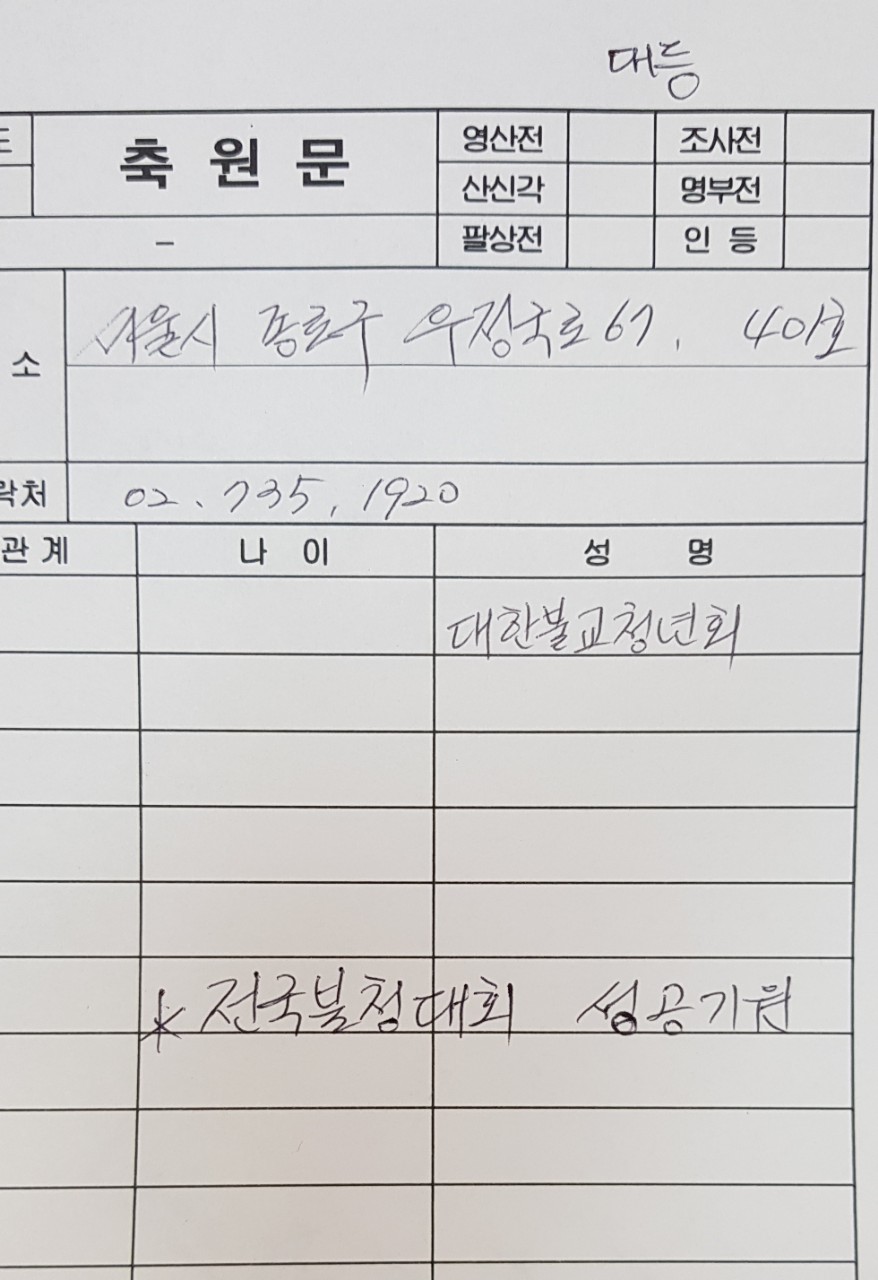 대등
축 원 문
영산전 조사전
산신각 명부전
팔상전 인 등
–
소 서울시 종로구 우정국로 67, 401호
락처 02. 735. 1920
관 계 나 이 성 명
대한불교청년회
* 전국불청대회 성공기원